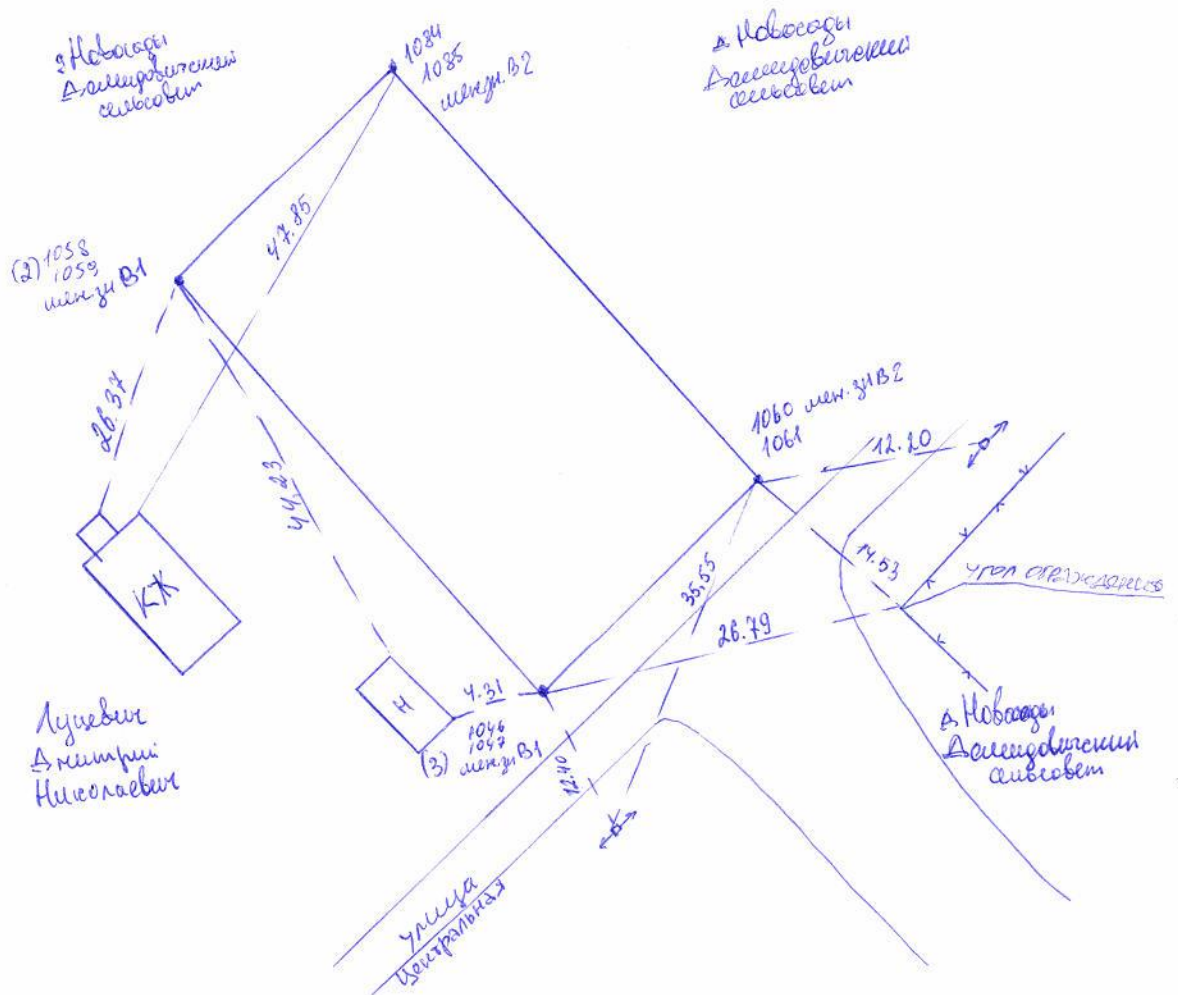 Новосады
Домидовичский
сельсовет
1084
1085
меж.зн. В2
д Новосады
Домидовичский
сельсовет
(2) 1058
1059
меж.зн В1
47.85
26.37
44.23
1060 меж.зн В2
1061
12.20
14.53
угол ограждения
35.55
26.79
КЖ
Н
4.31
1046
1047
(3) меж.зн В1
12.40
Луцевич
Дмитрий
Николаевич
д Новосады
Домидовичский
сельсовет
улица
Центральная